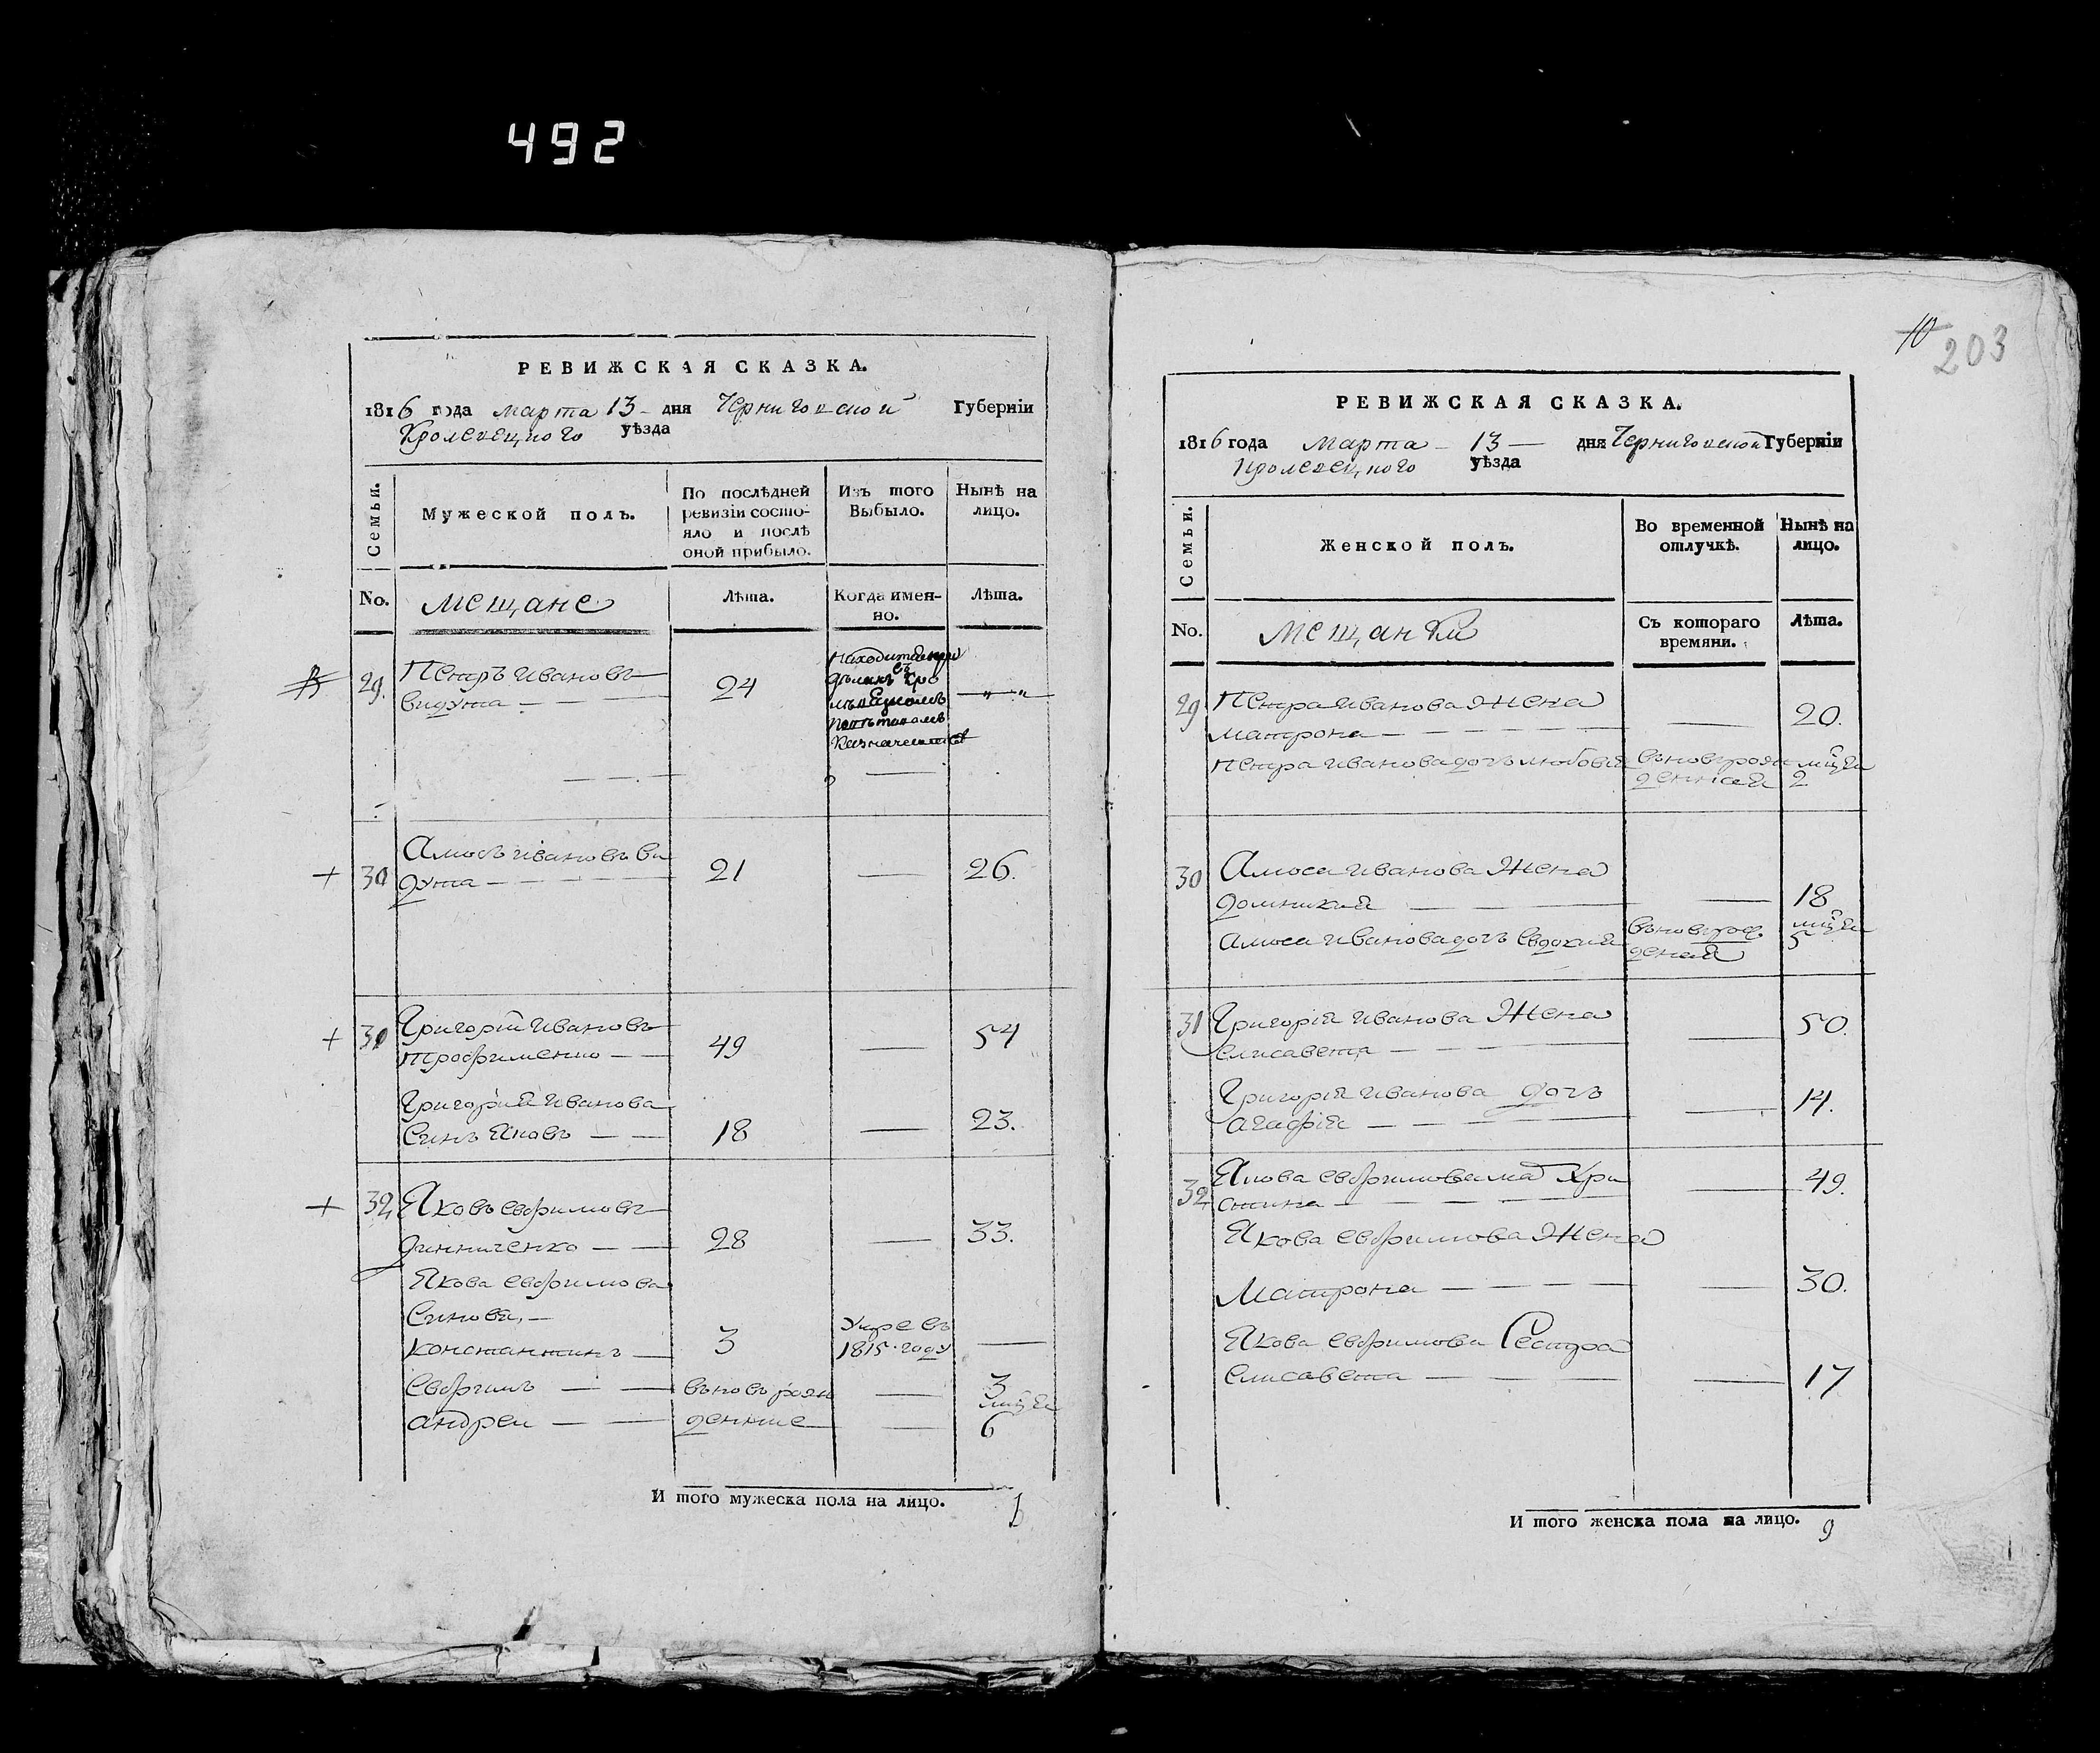 492
РЕВИЖСКАЯ СКАЗКА.
1816 года марта 13 дня Черниговской Губерніи
Кролевецкого уѣзда
Семьи.
Мужеской полъ.
По послѣдней
ревизіи состо-
яло и послѣ
оной прибыло.
Изъ того
Выбыло.
Нынѣ на
лицо.
No.
мещане
Лѣта.
Когда имен-
но.
Лѣта.
29. Петръ Ивановъ
Видута 24
30 Амосъ Ивановъ Ви
дута 21 26.
31 Григорій Ивановъ
Трофименко 49 54
Григорія Иванова
Синъ Яковъ 18 23.
32 Яковъ Евфимовъ
Динниченко 28 33.
Якова Евфимова
Синови,
Константинъ 3 Умре въ 1815. году
Евфимъ вьновь рож 3
Андреи денние 6 мцѣй
И того мужеска пола на лицо.
10
203
РЕВИЖСКАЯ СКАЗКА.
1816 года Марта 13 дня Черниговской Губерніи
Кролевецкого уѣзда
Семьи.
Женской полъ.
Во временной
отлучкѣ.
Нынѣ на
лицо.
No.
мещанки
Съ котораго
времяни.
Лѣта.
29 Петра Иванова Жена
Матрона 20.
Петра Иванова дочъ Любовія вьновь рож мцѣй
денная 2
30 Амоса Иванова Жена
Домникия 18
Амоса Иванова дочъ Евдокия вьновь рож мцѣй
деная 5
31 Григорія Иванова Жена
Елисавета 50.
Григорія Иванова дочъ
Агафія 14.
32 Якова Евфимова ма Хри
стина 49.
Якова Евфимова Жена
Матрона 30.
Якова Евфимова Сестра
Елисавета 17
И того женска пола на лицо. 9